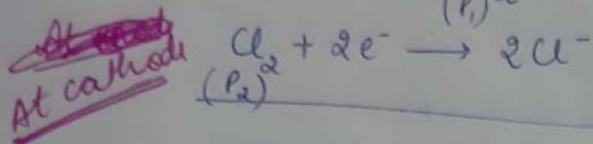 (P₁)
At cathode Cl₂ + 2e⁻ ⟶ 2Cl⁻
(P₂)